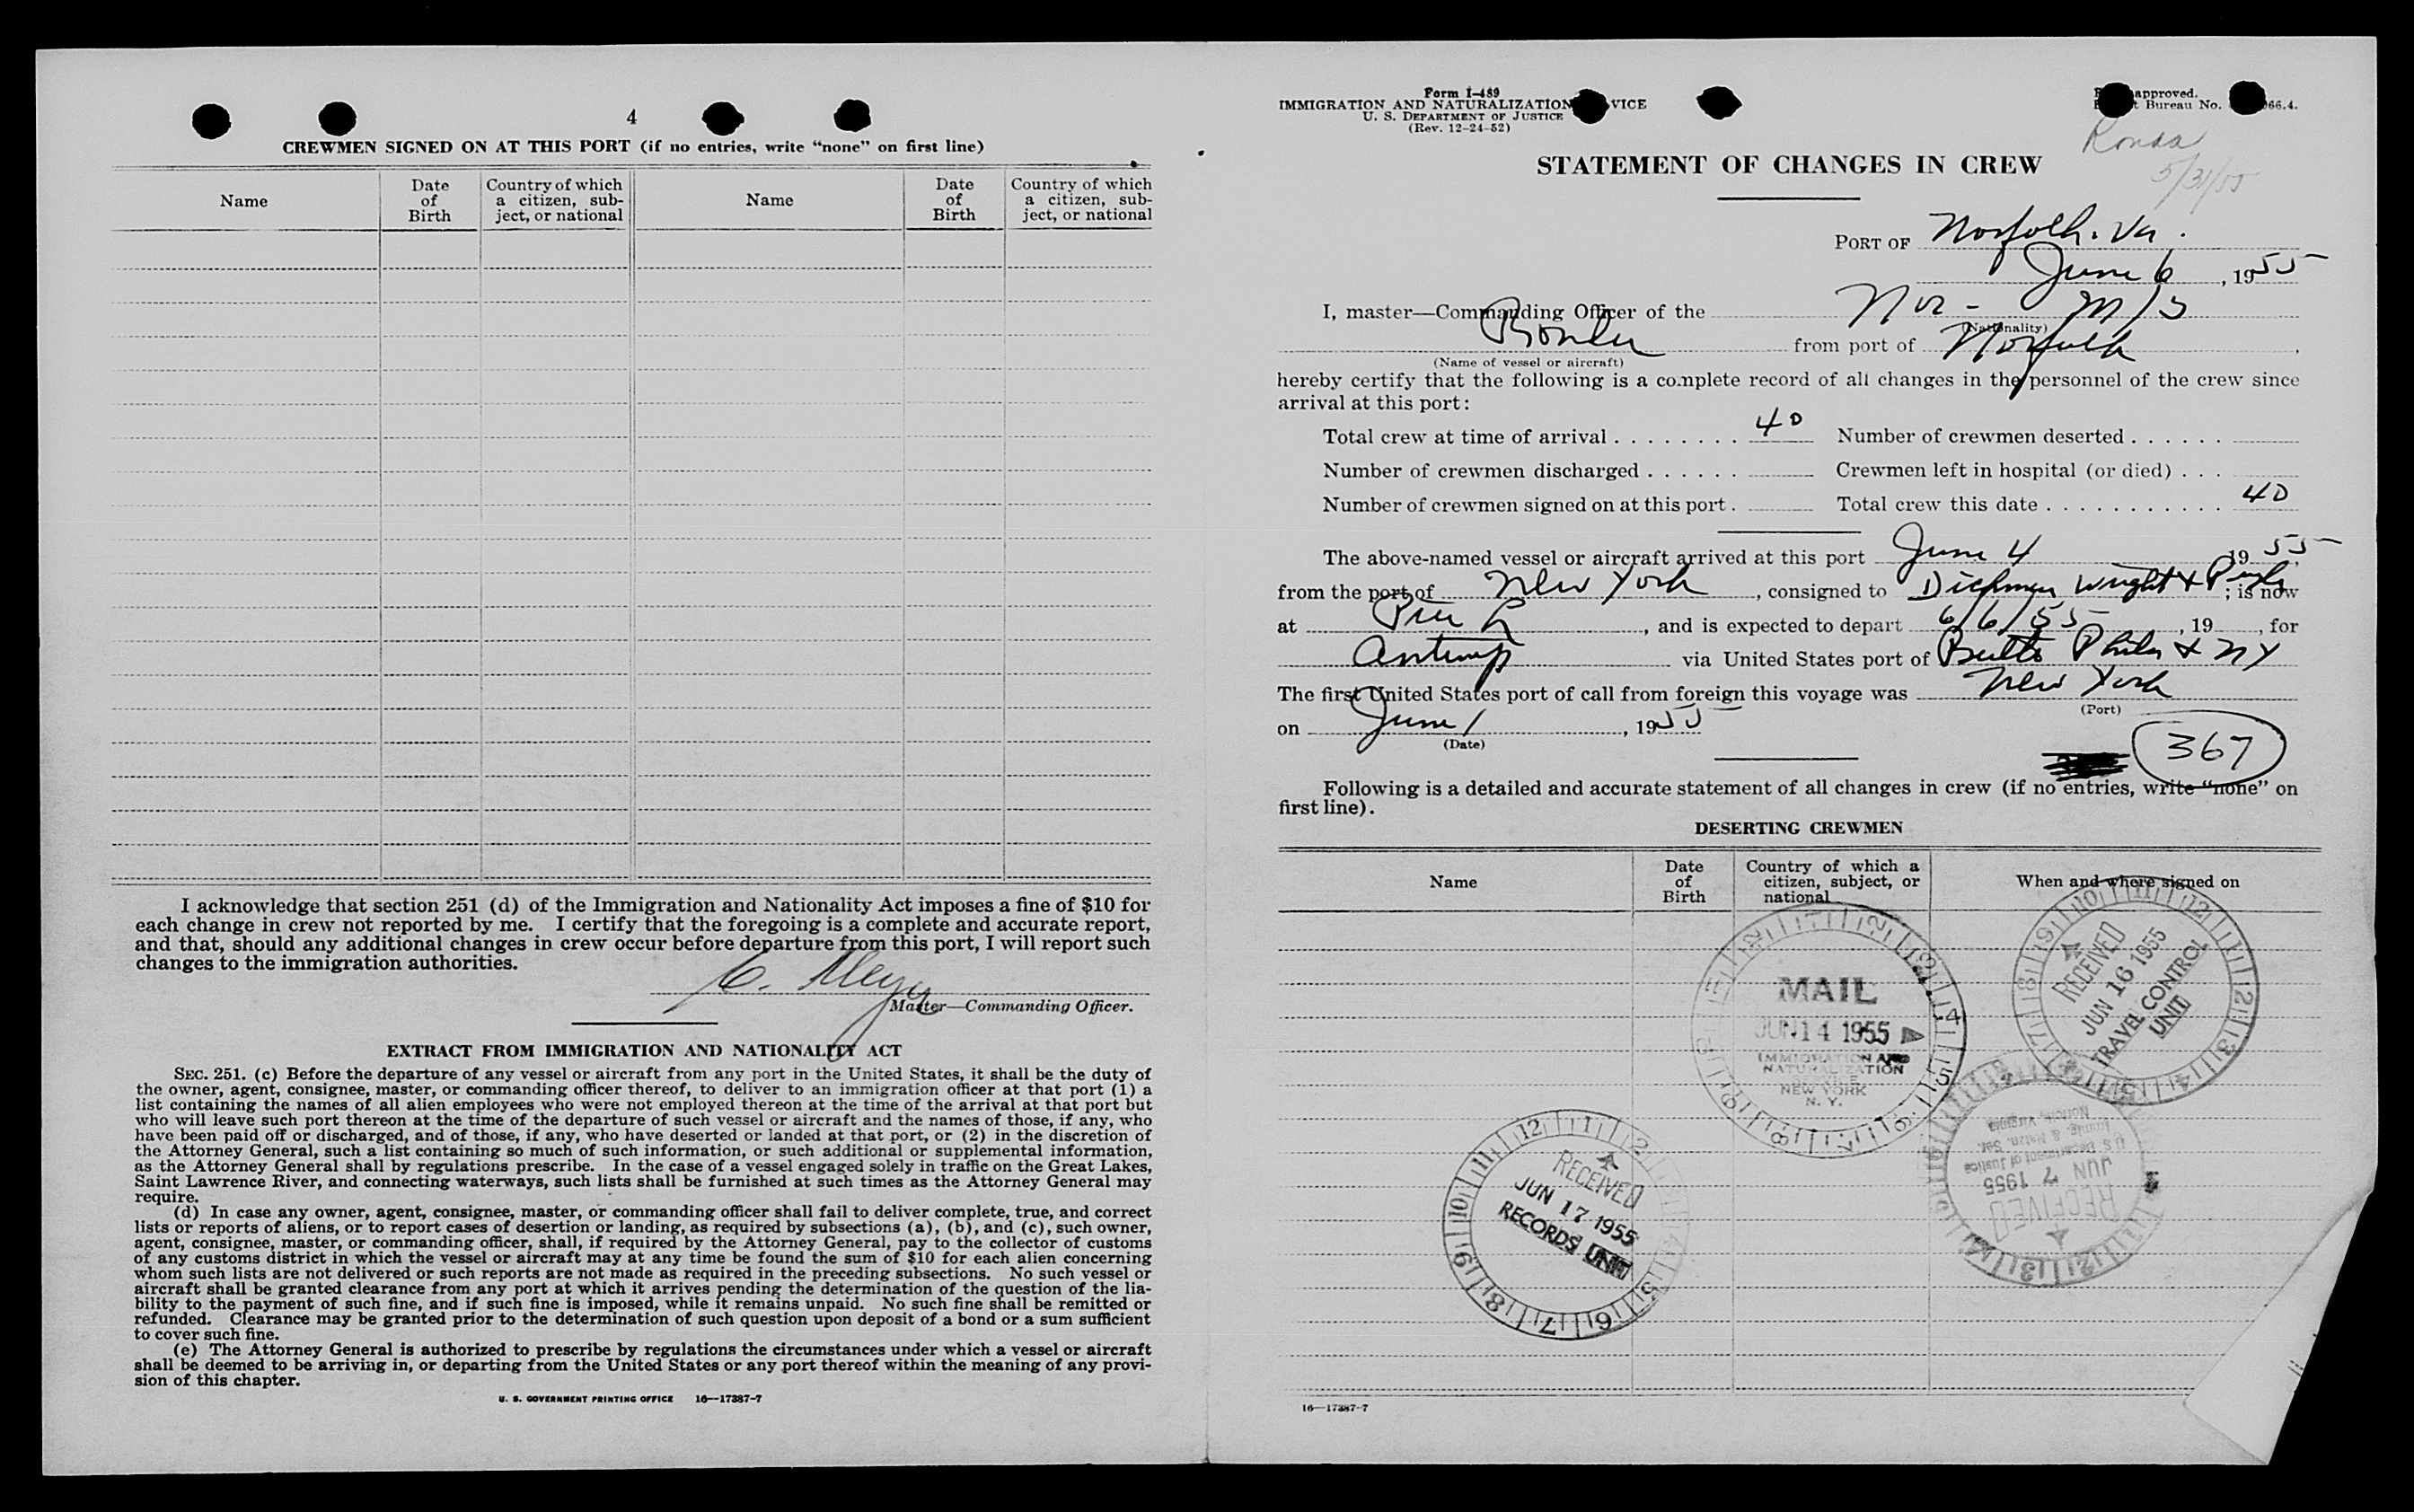 4
CREWMEN SIGNED ON AT THIS PORT (if no entries, write “none” on first line)
Name
Date of Birth
Country of which a citizen, sub-ject, or national
Name
Date of Birth
Country of which a citizen, sub-ject, or national
I acknowledge that section 251 (d) of the Immigration and Nationality Act imposes a fine of $10 for
each change in crew not reported by me. I certify that the foregoing is a complete and accurate report,
and that, should any additional changes in crew occur before departure from this port, I will report such
changes to the immigration authorities.
Master—Commanding Officer.
EXTRACT FROM IMMIGRATION AND NATIONALITY ACT
SEC. 251. (c) Before the departure of any vessel or aircraft from any port in the United States, it shall be the duty of
the owner, agent, consignee, master, or commanding officer thereof, to deliver to an immigration officer at that port (1) a
list containing the names of all alien employees who were not employed thereon at the time of the arrival at that port but
who will leave such port thereon at the time of the departure of such vessel or aircraft and the names of those, if any, who
have been paid off or discharged, and of those, if any, who have deserted or landed at that port, or (2) in the discretion of
the Attorney General, such a list containing so much of such information, or such additional or supplemental information,
as the Attorney General shall by regulations prescribe. In the case of a vessel engaged solely in traffic on the Great Lakes,
Saint Lawrence River, and connecting waterways, such lists shall be furnished at such times as the Attorney General may
require.
(d) In case any owner, agent, consignee, master, or commanding officer shall fail to deliver complete, true, and correct
lists or reports of aliens, or to report cases of desertion or landing, as required by subsections (a), (b), and (c), such owner,
agent, consignee, master, or commanding officer, shall, if required by the Attorney General, pay to the collector of customs
of any customs district in which the vessel or aircraft may at any time be found the sum of $10 for each alien concerning
whom such lists are not delivered or such reports are not made as required in the preceding subsections. No such vessel or
aircraft shall be granted clearance from any port at which it arrives pending the determination of the question of the lia-
bility to the payment of such fine, and if such fine is imposed, while it remains unpaid. No such fine shall be remitted or
refunded. Clearance may be granted prior to the determination of such question upon deposit of a bond or a sum sufficient
to cover such fine.
(e) The Attorney General is authorized to prescribe by regulations the circumstances under which a vessel or aircraft
shall be deemed to be arriving in, or departing from the United States or any port thereof within the meaning of any provi-
sion of this chapter.
U. S. GOVERNMENT PRINTING OFFICE 16—17387-7
Form I-489
IMMIGRATION AND NATURALIZATION VICE
U. S. DEPARTMENT OF JUSTICE
(Rev. 12-24-52)
approved.
Bureau No. 66.4.
Ronda
5/31/55
STATEMENT OF CHANGES IN CREW
PORT OF Norfolk. Va.
June 6, 1955
I, master—Commanding Officer of the Nor - M/S
(Nationality)
Ronda from port of Norfolk
(Name of vessel or aircraft)
hereby certify that the following is a complete record of all changes in the personnel of the crew since
arrival at this port:
Total crew at time of arrival 40 Number of crewmen deserted
Number of crewmen discharged Crewmen left in hospital (or died)
Number of crewmen signed on at this port. Total crew this date 40
The above-named vessel or aircraft arrived at this port June 4 1955,
from the port of New York, consigned to Wright & ; is now
at Pier, and is expected to depart 6/6/55, 19, for
Antwerp via United States port of Balto Phila & NY
The first United States port of call from foreign this voyage was New York
(Port)
on June 1, 1955
(Date)
367
Following is a detailed and accurate statement of all changes in crew (if no entries, write “none” on
first line).
DESERTING CREWMEN
Name
Date of Birth
Country of which a citizen, subject, or national
When and where signed on
MAIL
JUN 14 1955
IMMIGRATION AND
NATURALIZATION
NEW YORK
N. Y.
RECEIVED
JUN 16 1955
TRAVEL CONTROL
UNIT
RECEIVED
JUN 17 1955
RECORDS UNIT
RECEIVED
JUN 7 1955
U S Department of Justice
Norfolk, Virginia
16—17387-7